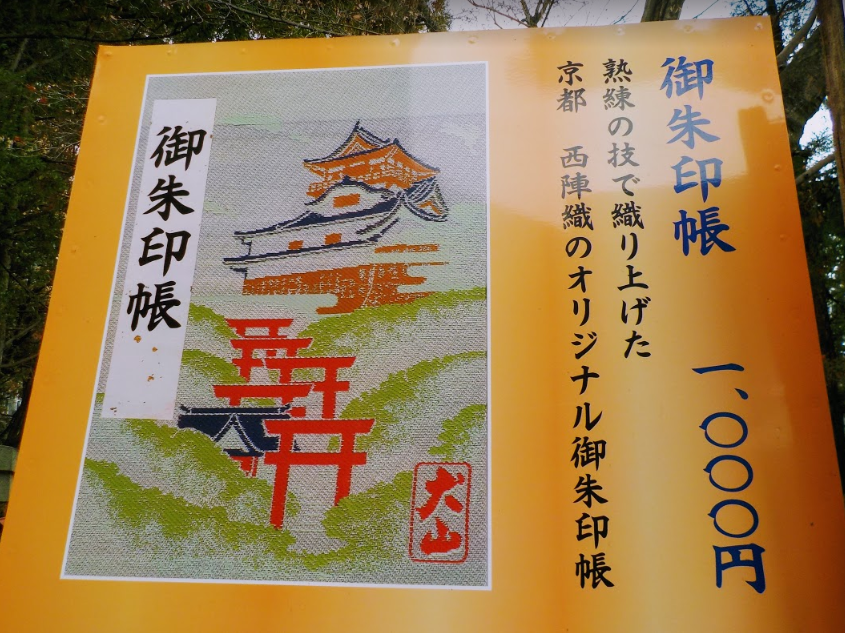 御朱印帳
一、〇〇〇円
熟練の技で織り上げた
京都 西陣織のオリジナル御朱印帳
御朱印帳
犬山